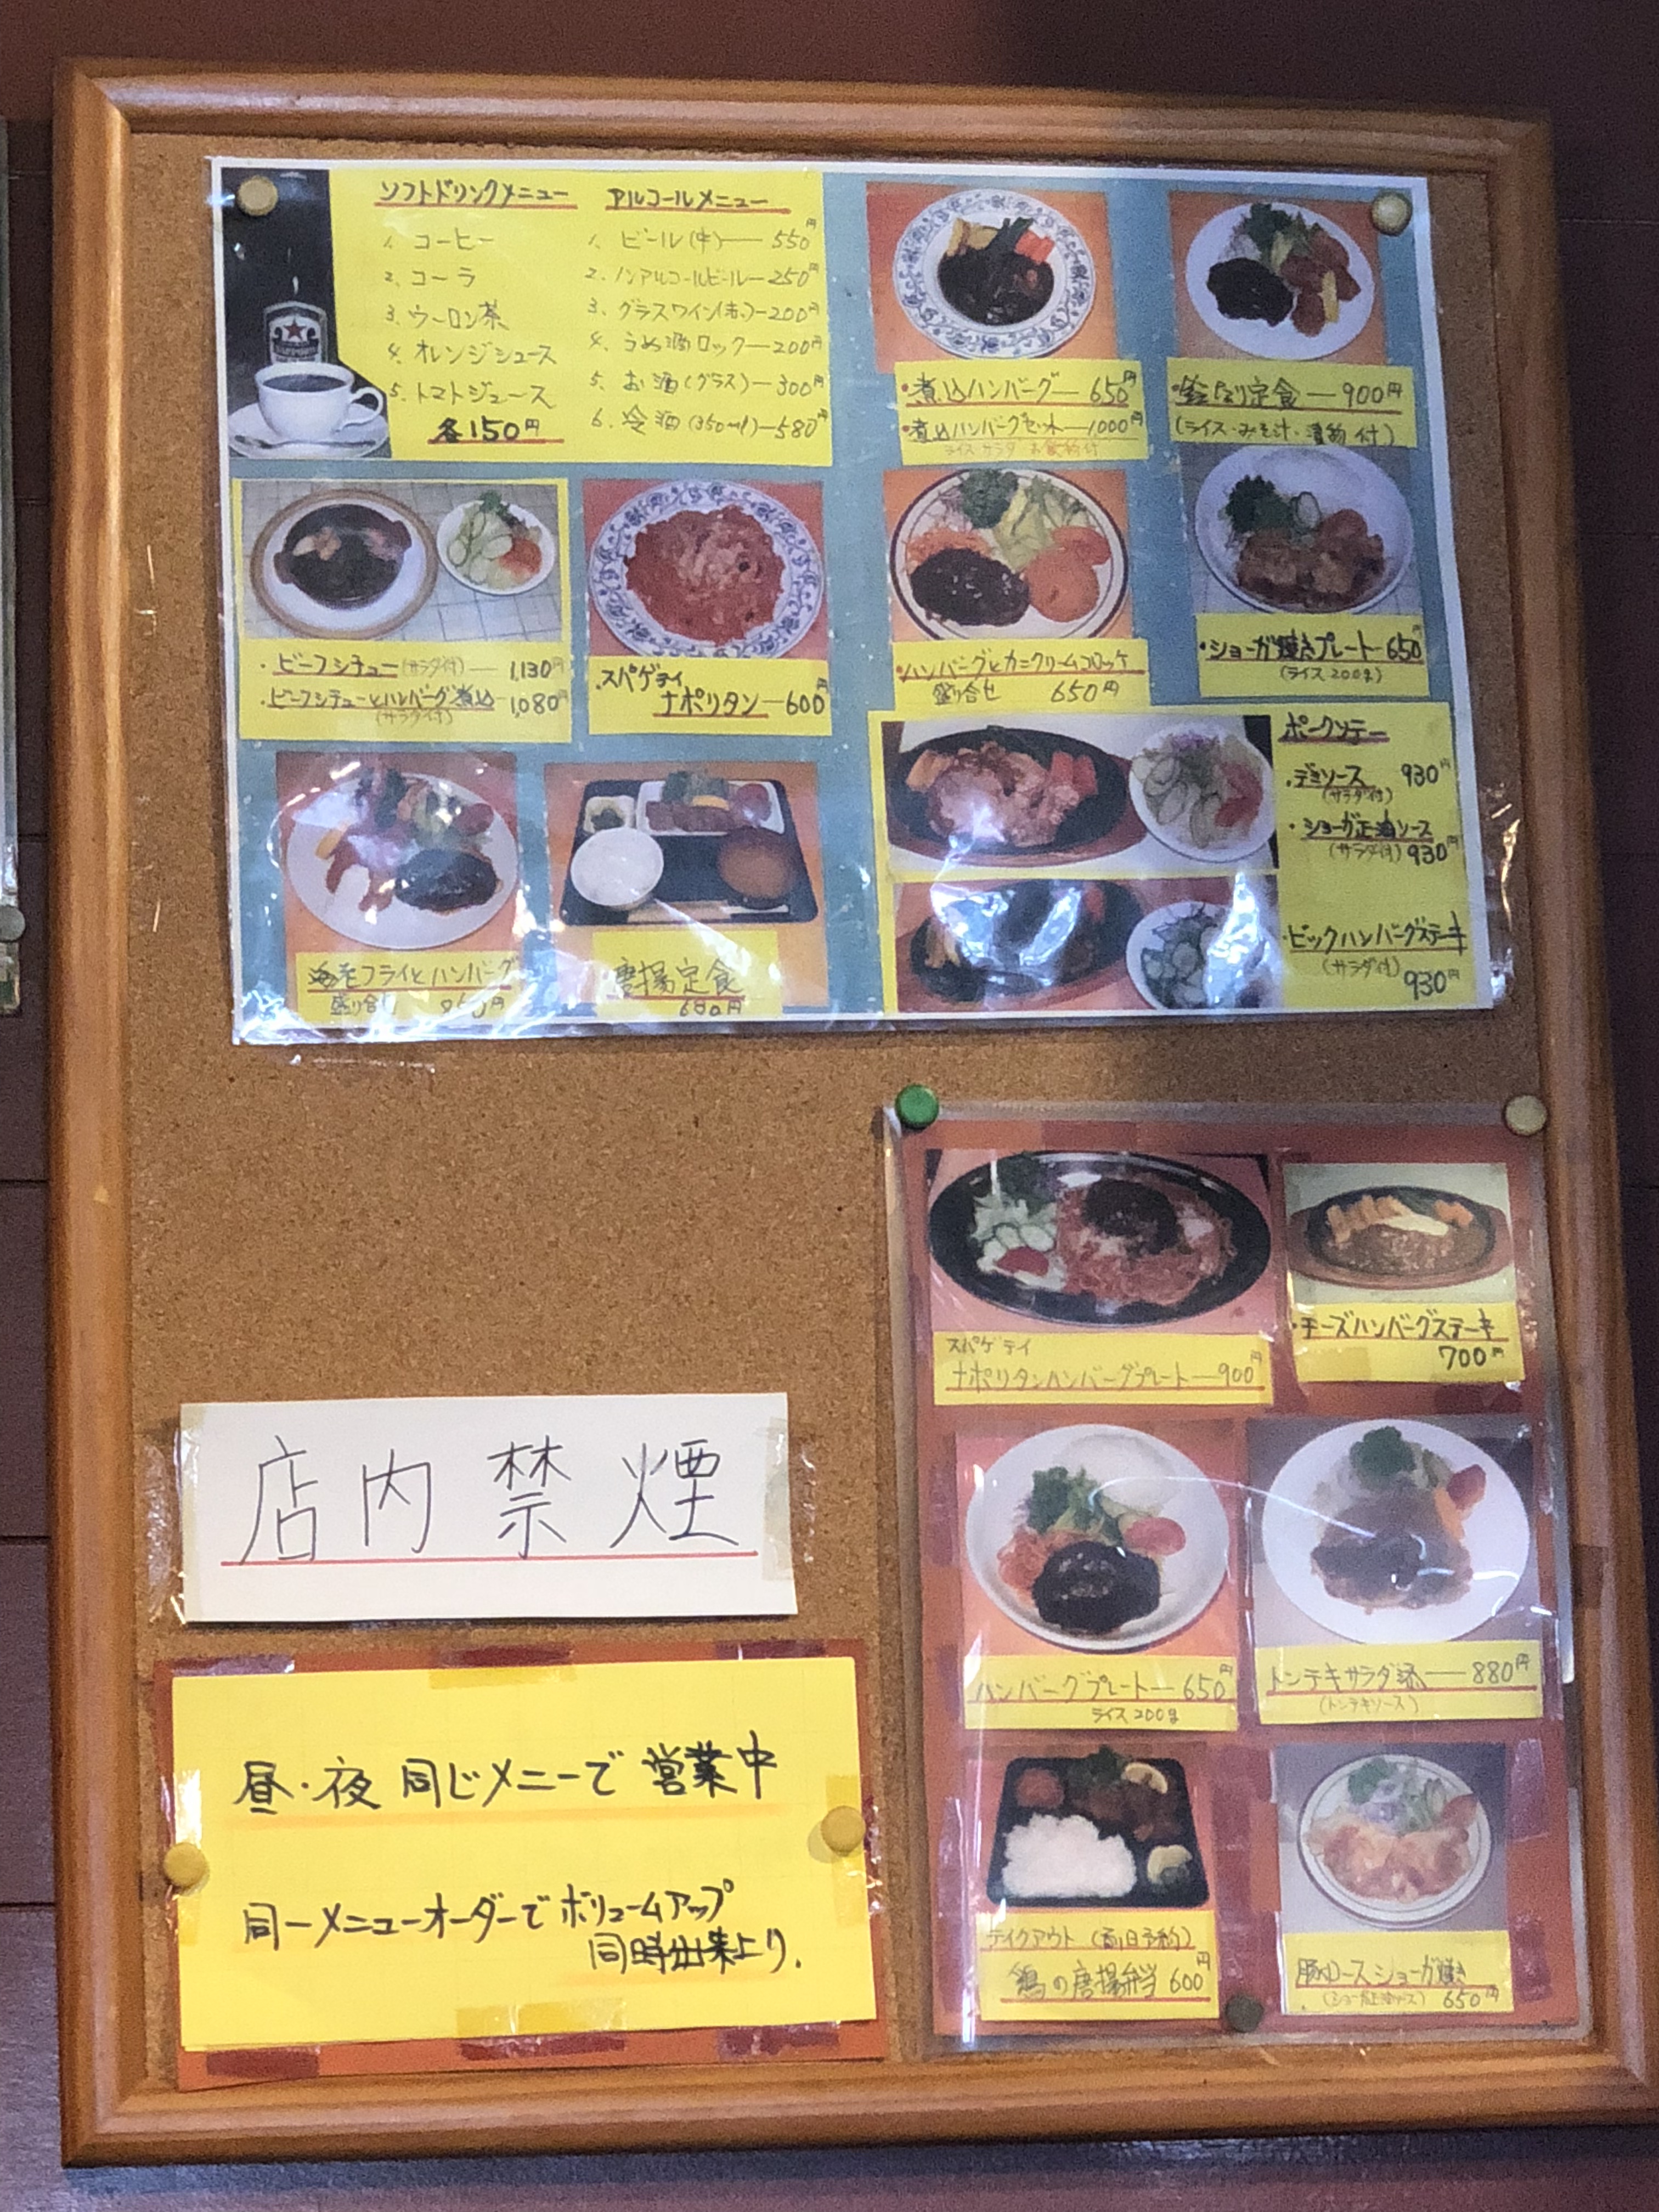 ソフトドリンクメニュー
1. コーヒー
2. コーラ
3. ウーロン茶
4. オレンジジュース
5. トマトジュース
各150円
アルコールメニュー
1. ビール(中)—550円
2. ノンアルコールビール—250円
3. グラスワイン(赤)—200円
4. うめ酒ロック—200円
5. お酒(グラス)—300円
6. 冷酒(350ml)—580円
・煮込ハンバーグ—650円
・煮込ハンバーグセット—1000円
ライス サラダ お飲物付
定食—900円
(ライス・みそ汁・漬物付)
・ビーフシチュー(サラダ付)—1,130円
・ビーフシチューとハンバーグ煮込—1,080円
(サラダ付)
・スパゲティ
ナポリタン—600円
・ハンバーグとカニクリームコロッケ
盛り合せ 650円
・ショーガ焼きプレート—650円
(ライス200g)
海老フライとハンバーグ
盛り合せ
唐揚定食
680円
ポークソテー
・デミソース 930円
(サラダ付)
・ショーガ正油ソース
(サラダ付) 930円
・ビックハンバーグステーキ
(サラダ付)
930円
スパゲティ
ナポリタンハンバーグプレート—900円
・チーズハンバーグステーキ
700円
ハンバーグプレート—650円
ライス200g
トンテキサラダ添—880円
(トンテキソース)
テイクアウト (前日予約)
鶏の唐揚弁当 600円
豚ロースショーガ焼き
(ショーガ正油ソース) 650円
店内禁煙
昼・夜 同じメニーで 営業中
同一メニューオーダーで ボリュームアップ
同時出来上り.